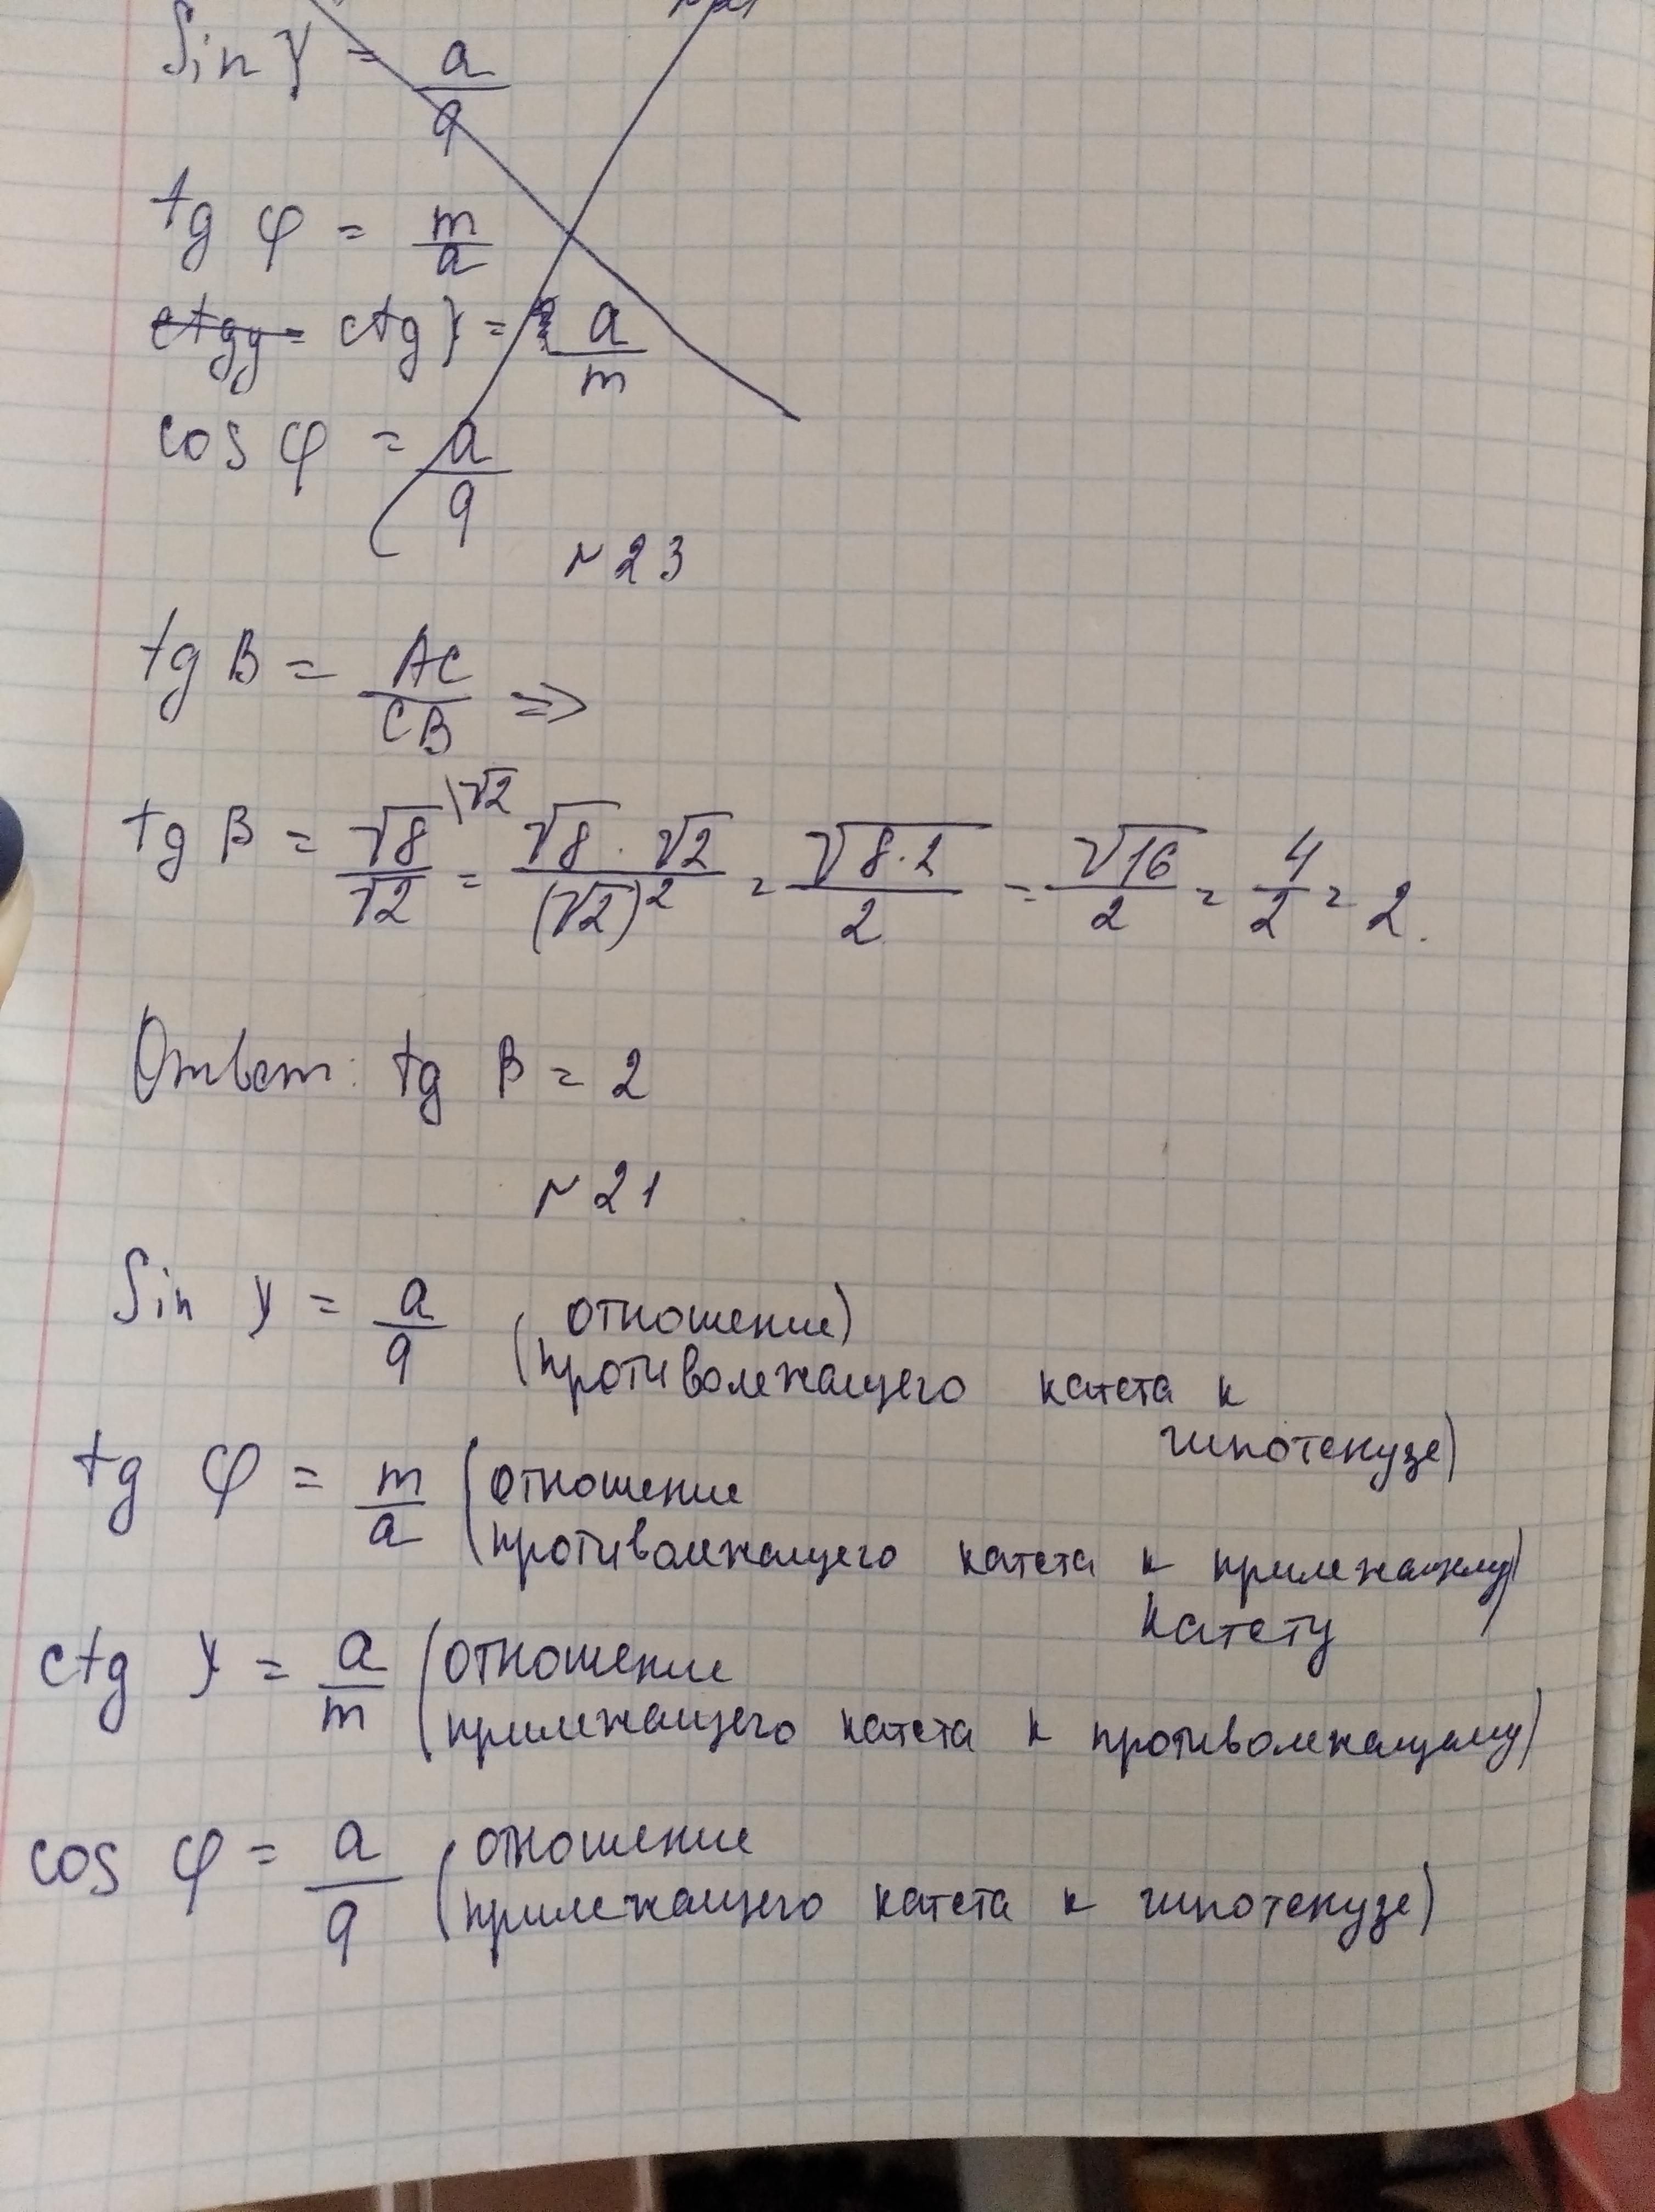 sin γ = a/q
tg φ = m/a
ctg γ = a/m
cos φ = a/q
N 23
tg B = AC/CB ⇒
tg B = √8/√2 \√2 = √8 · √2/(√2)² = √8·2/2 = √16/2 = 4/2 = 2.
Ответ: tg B = 2
N 21
sin γ = a/q (отношение)
(противолежащего катета к
гипотенузе)
tg φ = m/a (отношение
противолежащего катета к прилежащему)
катету
ctg γ = a/m (отношение
прилежащего катета к противолежащему)
cos φ = a/q (отношение
прилежащего катета к гипотенузе)